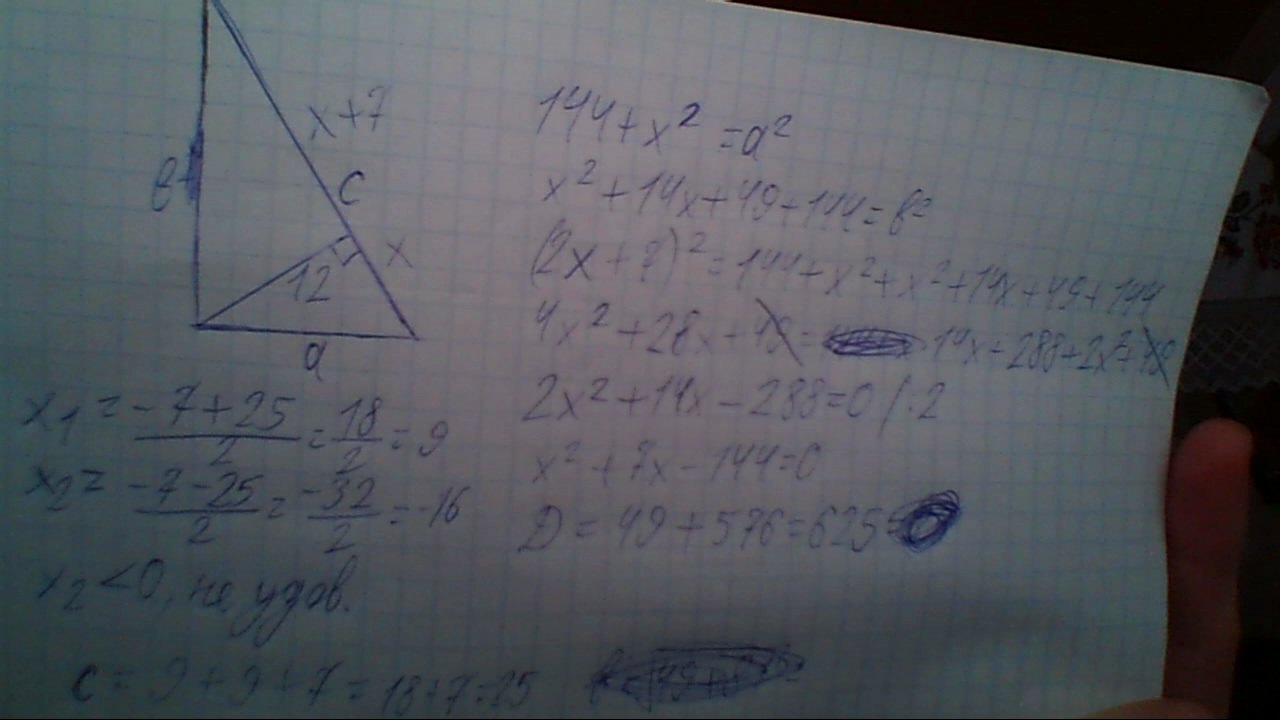 x+7
в
c
x
12
a
144+x² =a²
x²+14x+49+144=в²
(2x+7)²=144+x²+x²+14x+49+144
4x²+28x+49= 14x+288+2x²+49
2x²+14x-288=0/:2
x²+7x-144=0
D=49+576=625
x₁=-7+25/2=18/2=9
x₂=-7-25/2=-32/2=-16
x₂<0, не удов.
c=9+9+7=18+7=25